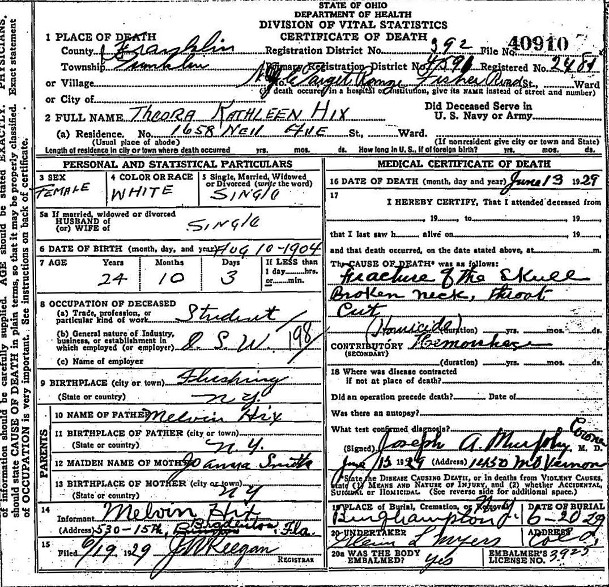 PHYSICIANS
of information should be carefully supplied. AGE should be stated EXACTLY.
should state CAUSE OF DEATH in plain terms, so that it may be properly classified. Exact statement
of OCCUPATION is very important. See instructions on back of certificate.
STATE OF OHIO
DEPARTMENT OF HEALTH
DIVISION OF VITAL STATISTICS
CERTIFICATE OF DEATH
1 PLACE OF DEATH
County Franklin Registration District No. 392 File No. 40910
Township Franklin Primary Registration District No. Registered No.
or Village No. Target Range Fisher Road St., Ward
(If death occurred in a hospital or institution, give its NAME instead of street and number)
or City of
2 FULL NAME THEORA KATHLEEN HIX Did Deceased Serve in U. S. Navy or Army
(a) Residence. No. 1658 Neil AVE St., Ward.
(Usual place of abode) (If nonresident give city or town and State)
Length of residence in city or town where death occurred yrs. mos. ds. How long in U. S., if of foreign birth? yrs. mos. ds.
PERSONAL AND STATISTICAL PARTICULARS
3 SEX 4 COLOR OR RACE 5 Single, Married, Widowed or Divorced (write the word)
FEMALE WHITE SINGLE
5a If married, widowed or divorced
HUSBAND of
(or) WIFE of SINGLE
6 DATE OF BIRTH (month, day, and year) AUG 10-1904
7 AGE Years Months Days If LESS than
24 10 3 1 day, hrs.
or min.
8 OCCUPATION OF DECEASED
(a) Trade, profession, or
particular kind of work Student
(b) General nature of Industry,
business, or establishment in
which employed (or employer) O. S. U. 198
(c) Name of employer
9 BIRTHPLACE (city or town) Flushing
(State or country) N.Y.
PARENTS
10 NAME OF FATHER Melvin Hix
11 BIRTHPLACE OF FATHER (city or town)
(State or country) N.Y.
12 MAIDEN NAME OF MOTHER Joanna Smith
13 BIRTHPLACE OF MOTHER (city or town)
(State or country) N.Y
14
Informant Melvin Hix
(Address) 530-15th, Bradenton, Fla.
15
Filed 6/19, 1929 J. W. Keegan
REGISTRAR
MEDICAL CERTIFICATE OF DEATH
16 DATE OF DEATH (month, day and year) June 13 1929
17
I HEREBY CERTIFY, That I attended deceased from
, 19 , to , 19
that I last saw h alive on , 19
and that death occurred, on the date stated above, at m.
The CAUSE OF DEATH* was as follows:
Fracture of the Skull
Broken neck, throat
Cut
(Homicide) (duration) yrs. mos. ds.
CONTRIBUTORY Hemorrhage
(SECONDARY)
(duration) yrs. mos. ds.
18 Where was disease contracted
if not at place of death?
Did an operation precede death? Date of
Was there an autopsy?
What test confirmed diagnosis?
(Signed) Joseph A. Murphy Coroner M. D.
June 13, 1929 (Address) 1450 Mt Vernon
*State the DISEASE CAUSING DEATH, or in deaths from VIOLENT CAUSES,
state (1) MEANS AND NATURE OF INJURY, and (2) whether ACCIDENTAL,
SUICIDAL or HOMICIDAL. (See reverse side for additional space.)
19 PLACE OF Burial, Cremation, or Removal DATE OF BURIAL
Binghampton N.Y. 6-20-29
20 UNDERTAKER ADDRESS
Glenn L. Myers
20a WAS THE BODY EMBALMED? yes EMBALMER'S LICENSE No. 3925